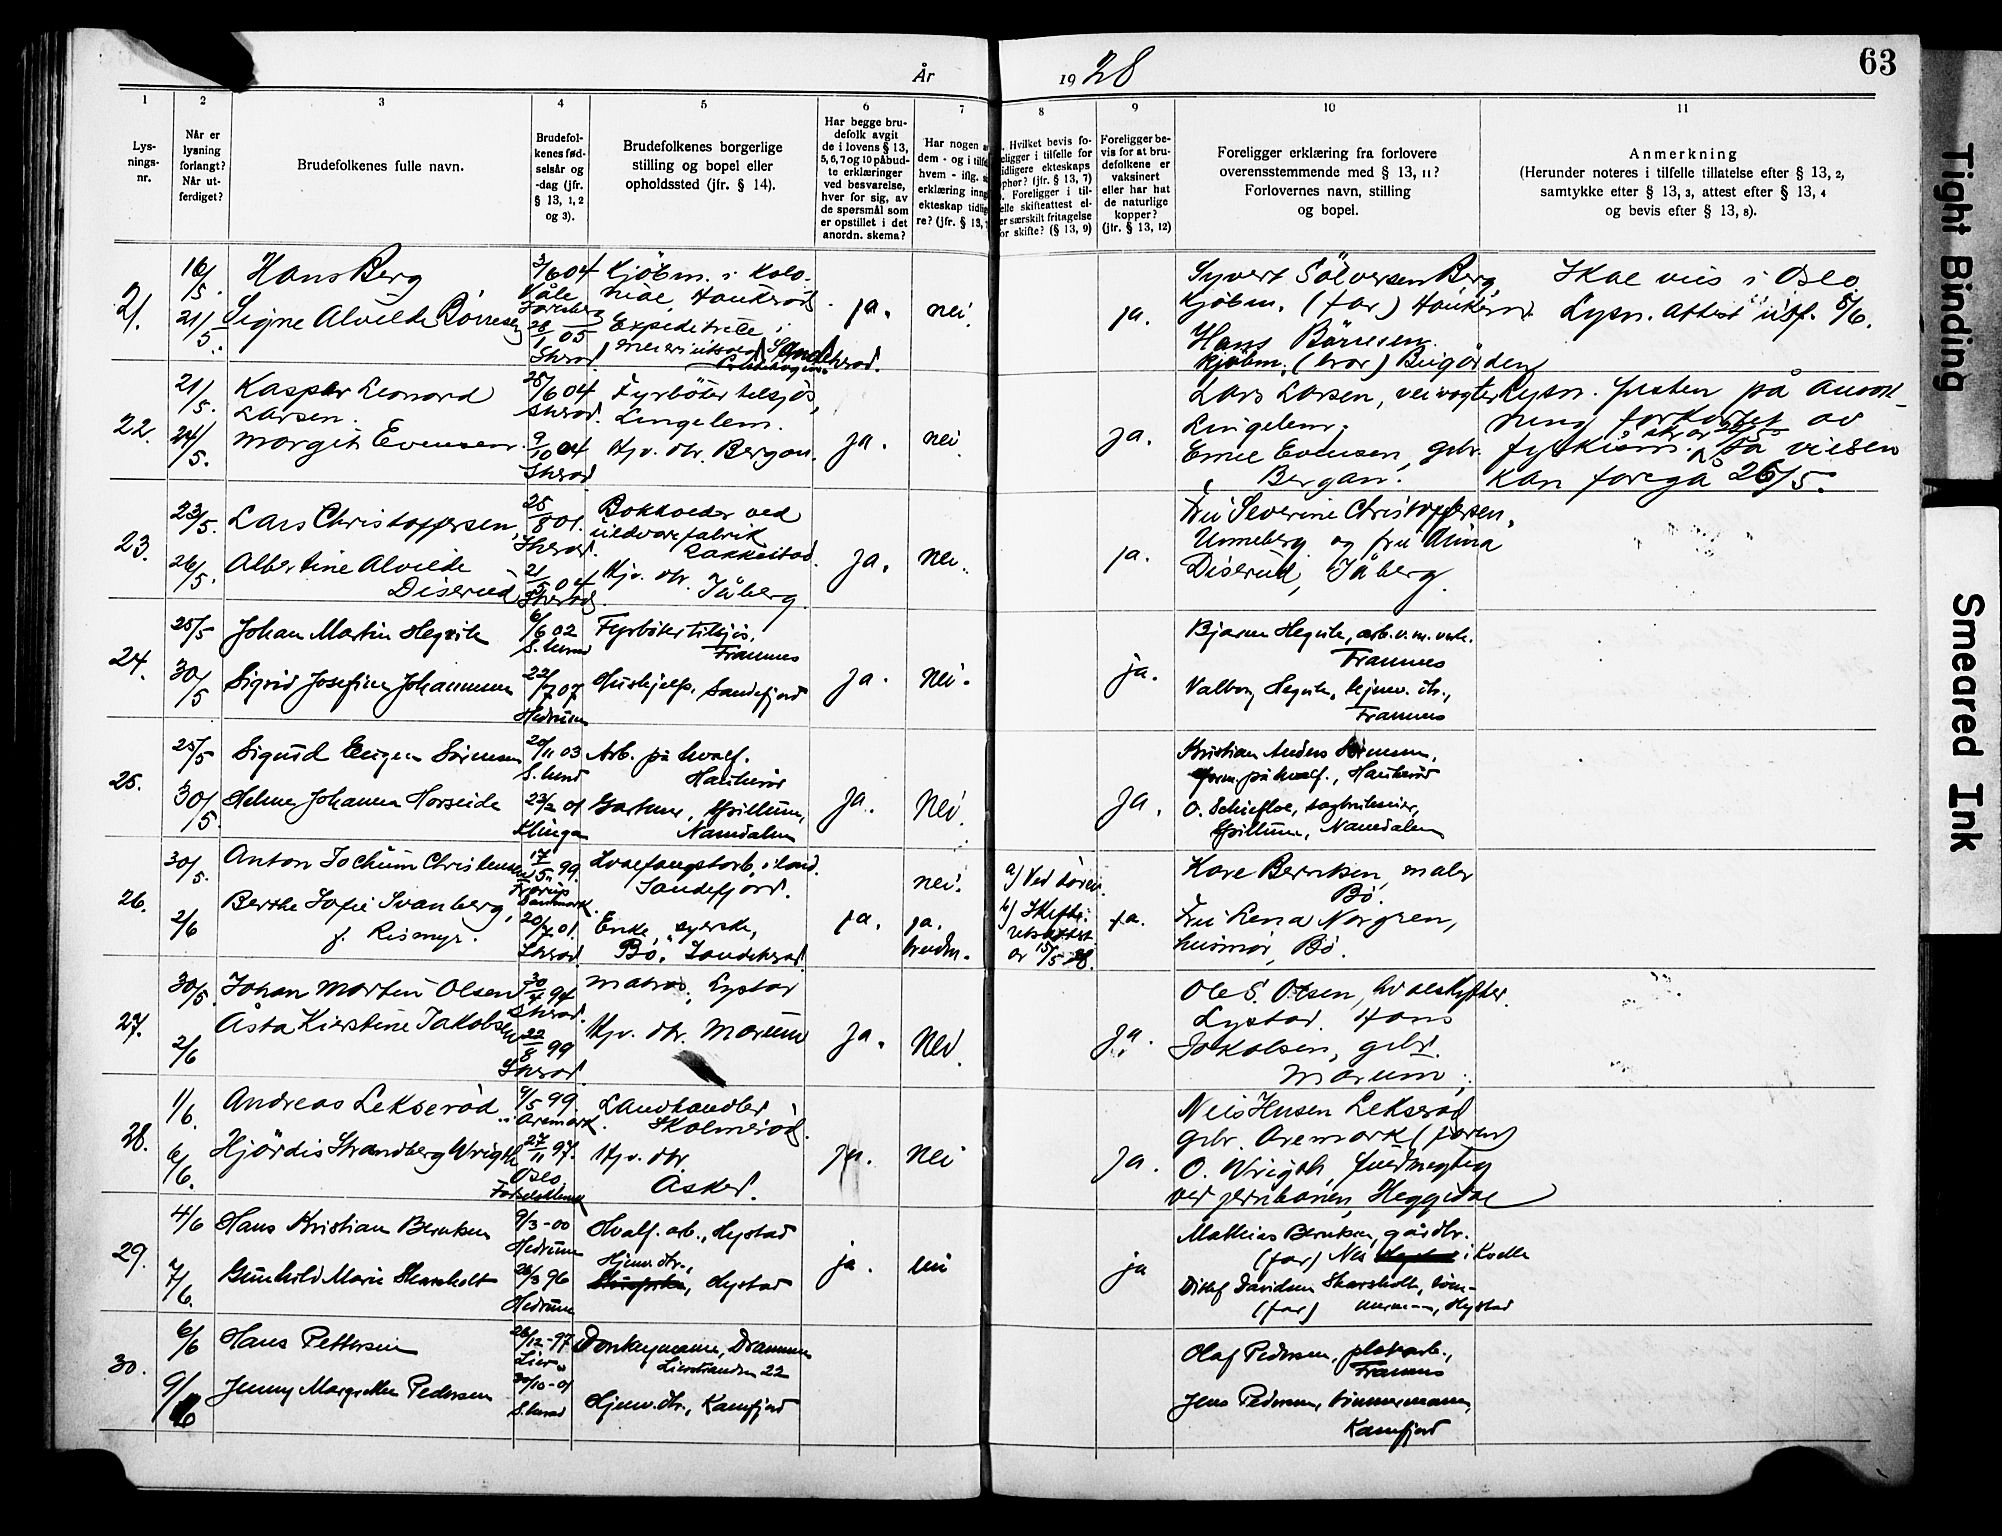 År 1928
63
1 2 3 4 5 6 7 8 9 10 11
Lys-
nings-
nr.
Når er
lysning
forlangt?
Når ut-
ferdiget?
Brudefolkenes fulle navn.
Brudefol-
kenes fød-
selsår og
-dag (jfr.
§ 13, 1, 2
og 3).
Brudefolkenes borgerlige
stilling og bopel eller
opholdssted (jfr. § 14).
Har begge bru-
defolk avgit
de i lovens § 13,
5, 6, 7 og 10 påbud-
te erklæringer
ved besvarelse,
hver for sig, av
de spørsmål som
er opstillet i det
anordn. skema?
Har nogen a
dem - og i tilfe
hvem - iflg. s
erklæring inng
ekteskap tidlig
re? (jfr. § 13,
. Hvilket bevis fo-
eligger i tilfelle for
idligere ekteskaps
phør? (jfr. § 13, 7)
. Foreligger i til-
elle skifteattest el-
er særskilt fritagelse
or skifte? (§ 13, 9)
Foreligger be-
vis for at bru-
defolkene er
vaksinert
eller har hat
de naturlige
kopper?
(jfr. § 13, 12)
Foreligger erklæring fra forlovere
overensstemmende med § 13, 11?
Forlovernes navn, stilling
og bopel.
Anmerkning
(Herunder noteres i tilfelle tillatelse efter § 13, 2,
samtykke efter § 13, 3, attest efter § 13, 4
og bevis efter § 13, 8).
21.
16/5.
21/5.
Hans Berg
Signe Alvilde Börresen
3/6 04
Våle
Jarlsberg
28/1 05
Shered.
Kjöbm. i Kolo-
nial, Haukeröd
Expeditrice i
meieriutsalg Sandeherad.
ja.
nei.
ja.
Syvert Sölversen Berg,
Kjöbm. (far) Haukeröd.
Hans Börresen
Kjöbm. (bror) Bugården
Skal vies i Oslo
Lysn. attest utf. 5/6.
22.
21/5.
24/5.
Kasper Leonard
Larsen.
Margit Evensen.
25/6 04
Shered.
9/10 04
Shered
Fyrböter tilsjös,
Lingelem.
Hjv. dtr. Bergan.
ja.
nei.
ja.
Lars Larsen, veivogter
Lingelem;
Emil Evensen, gbr.
Bergan.
Lysn. fristen på anvod-
ning forkortet av
fylkism. så vielsen
kan foregå 26/5.
23.
23/5.
26/5.
Lars Christoffersen,
Albertine Alvilde
Diserud
25/8 01.
Shered.
21/5 04
Shered.
Bokholder ved
uldvarefabrik
Rakkestad.
Hjv. dtr.
Jåberg.
ja.
nei.
ja.
Fru Severine Christoffersen,
Unneberg og fru Mina
Diserud, Jåberg.
24.
25/5
30/5
Johan Martin Hegvik
Sigrid Josefine Johannessen
6/6 02
S.herad
22/7 07
Hedrum
Fyrböter tilsjös,
Framnes
Hushjelp, Sandefjord
ja.
nei.
ja.
Bjarne Hegvik, arb. v. m. verk.
Framnes
Valborg Hegvik, hjemv. dtr.,
Framnes
25.
25/5
30/5.
Sigurd Eugen Sörensen
Helmer Johanna Horseide
20/11 03
S. herad
23/2 01
Klinga
Arb. på hvalf.
Haukeröd
Gartner, Spillum,
Namdalen
ja.
nei.
ja.
Kristian Anders Sörensen,
form. på hvalf., Haukeröd
O. Schiefloe, sagbrukseier,
Spillum, Namdalen
26.
30/5.
2/6
Anton Jochum Christensen
Berthe Sofie Svanberg,
f. Rismyr.
17/5 99.
Frörup
Danmark.
20/7 01.
Shered.
Hvalfangstarb. i land.
Sandefjord.
Enke, syerske,
Bö, Sandeherad.
ja.
nei.
ja.
brudn.
a) Ved dödsn.
b) Skifte-
retsattest
av 15/5 28.
ja.
Kare Berntsen, maler
Bö.
Fru Lena Norgren,
husmor, Bö.
27.
30/5.
2/6
Johan Martin Olsen
Åsta Kirstine Jakobsen
30/4 94
Shered.
22/8 99
Shered.
matros, Lystad
Hjv. dtr. Marum
ja.
nei.
ja.
Ole S. Olsen, hvalskytter.
Lystad. Hans
Jakobsen, gbr.
Marum.
28.
1/6.
6/6.
Andreas Lekseröd
Hjördis Strandberg Wrigth
9/5 99.
i Aremark.
27/11 97.
Oslo
Landhandler
Skolmeröd.
Hjv. dtr.
Asker.
ja.
nei
ja.
Neils Husen Lekseröd
gbr. Aremark (faren)
O. Wrigth, fuldmegtig
ved jernbanen, Heggedal
29.
4/6
7/6.
Hans Kristian Berntsen
Gunhild Marie Skarsholt
9/3-00
Hedrum
26/3 96
Hedrum
Hvalf. arb., Hystad
Hjemv. dtr.,
Hystad
ja.
nei
ja
Mathias Berntsen, gårdbr.
(far) Nes i Kodle
Ditlef Davidsen Skarsholt, töm-
(far) mermann, Hystad
30.
6/6
9/6
Hans Pettersen
Jenny Margrethe Pedersen
26/12-97
Lier
30/10-01
S.herad
Donkeymann, Drammen
Lierstranden 22
Hjemv. dtr., Kamfjord
Olaf Pedersen, platearb.,
Framnes
Jens Pedersen, tömmermann,
Kamfjord
Tight Binding
Smeared Ink